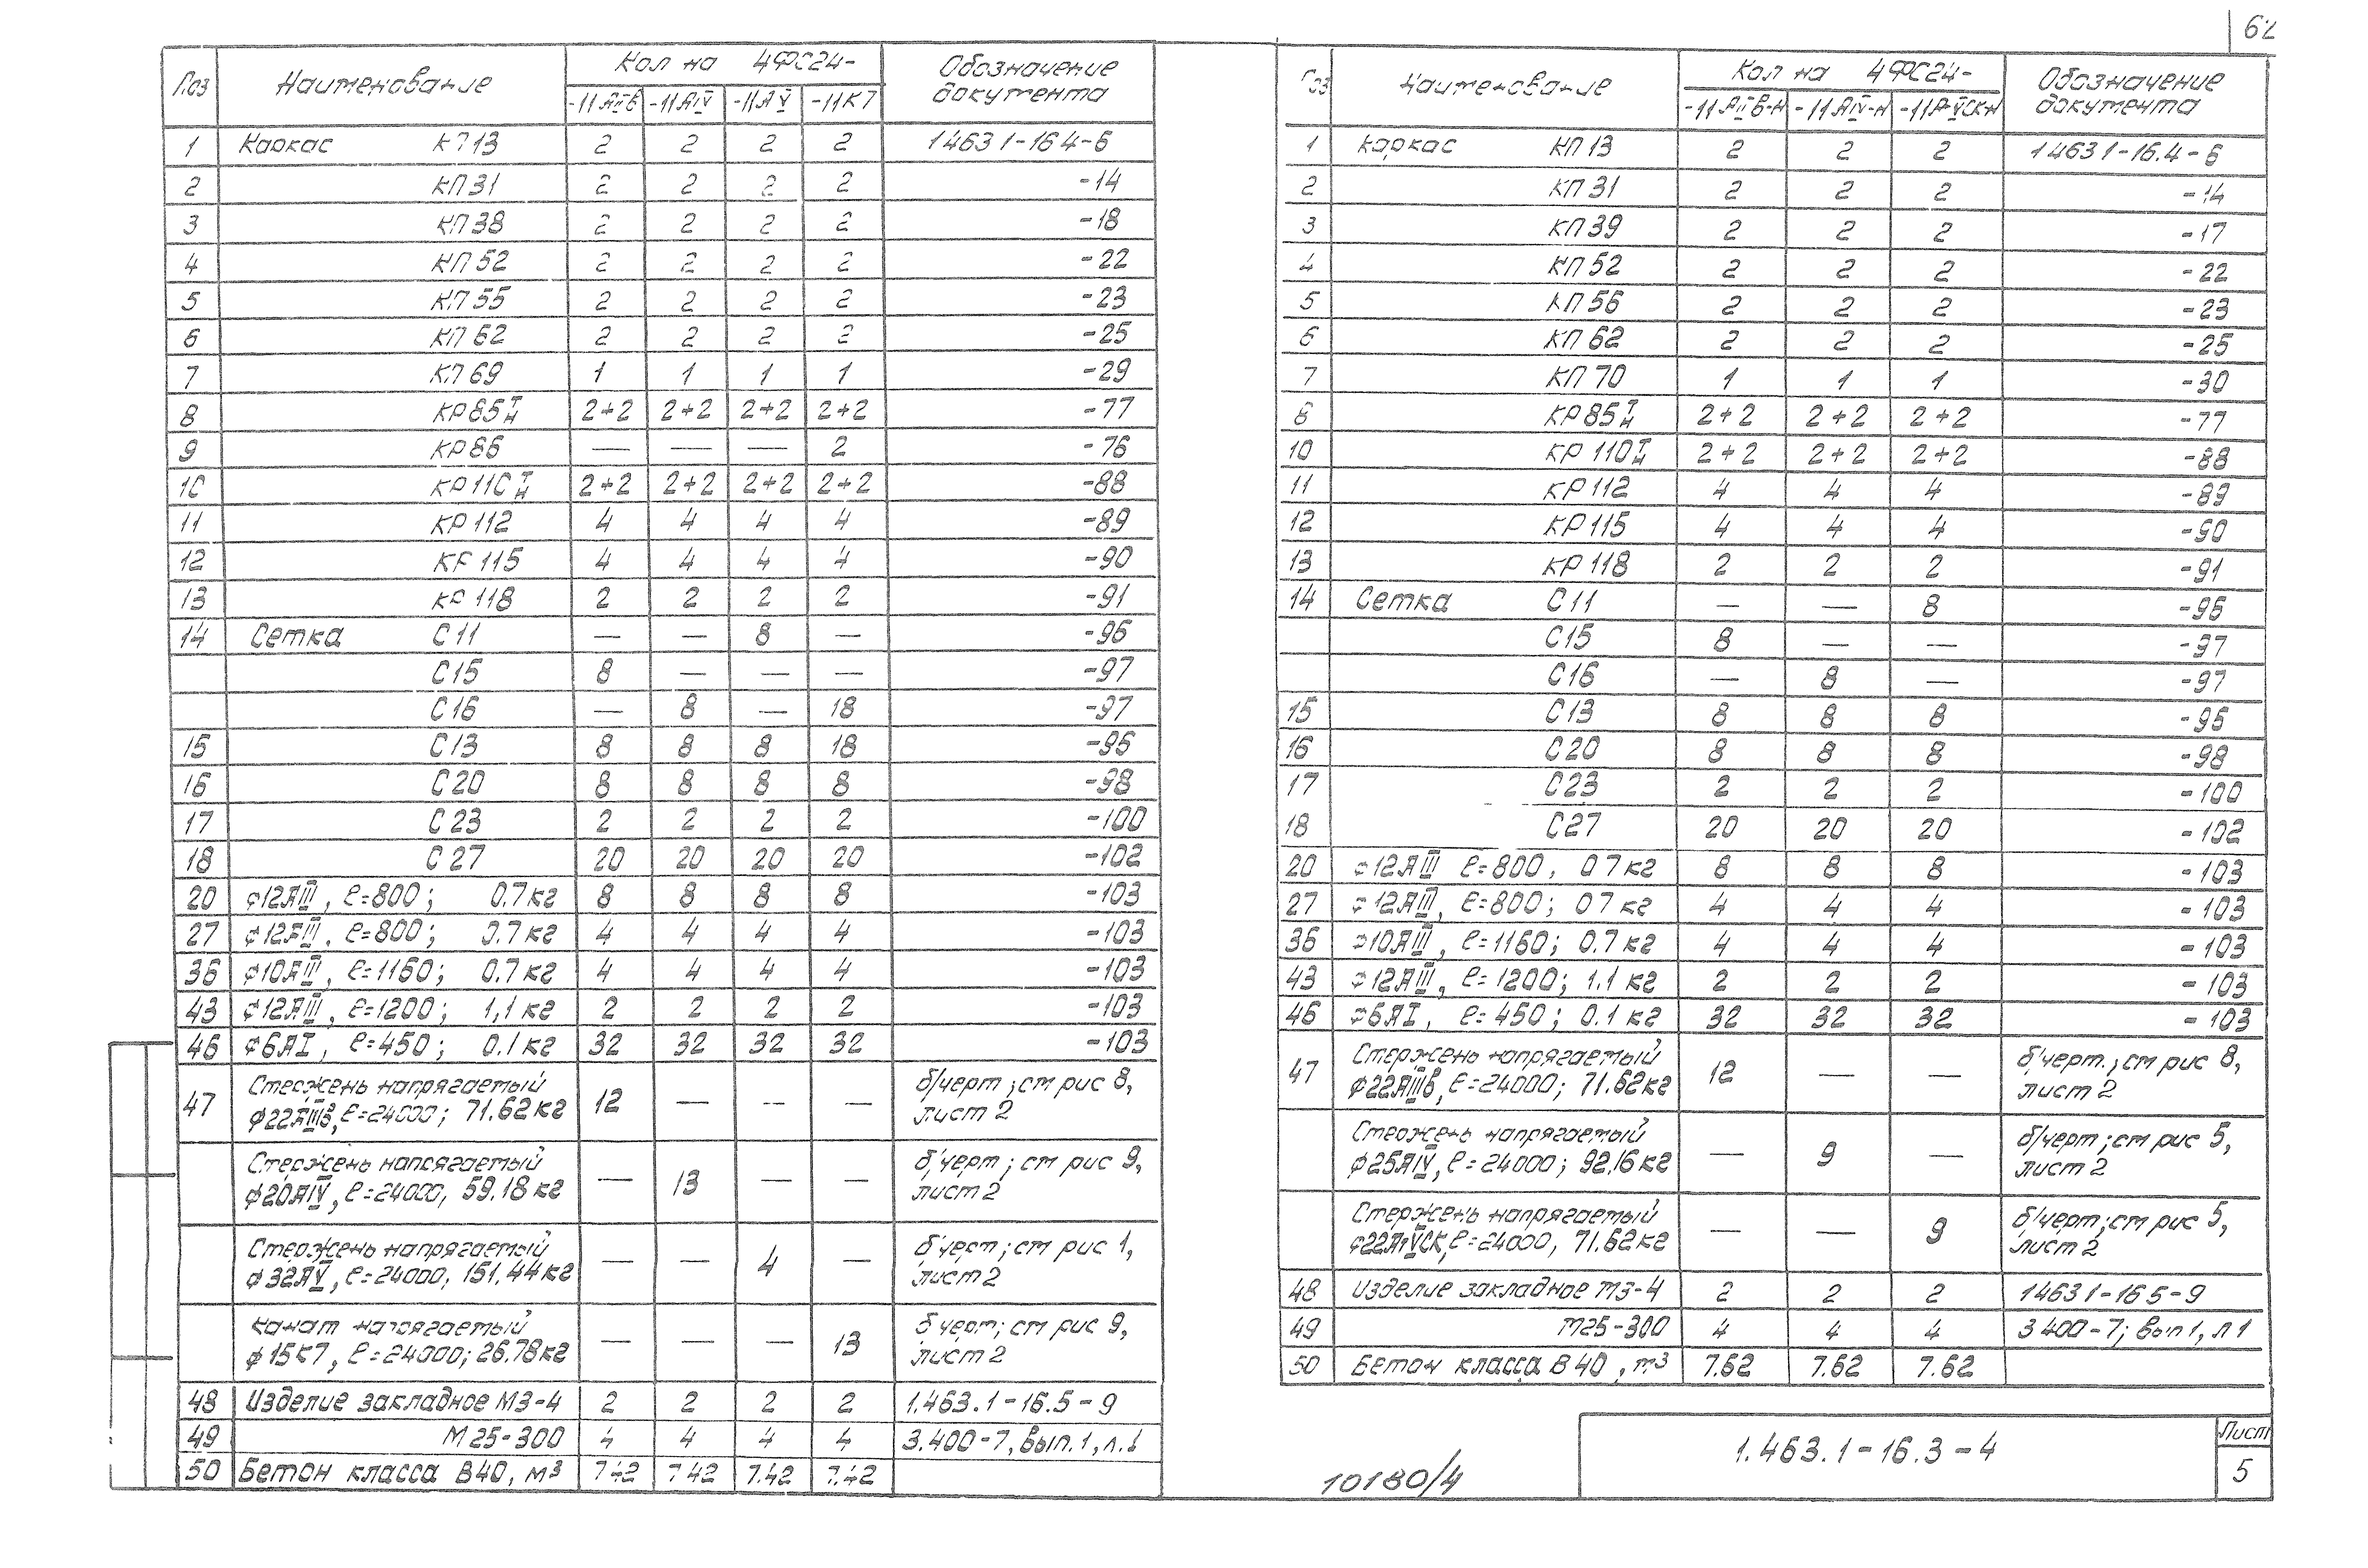 62
Поз Наименование Кол на 4ФС24- Обозначение документа
-11АIIIв -11АIV -11АV -11К7
1 Каркас КП13 2 2 2 2 1463 1-16 4-6
2 КП31 2 2 2 2 -14
3 КП38 2 2 2 2 -18
4 КП52 2 2 2 2 -22
5 КП55 2 2 2 2 -23
6 КП62 2 2 2 2 -25
7 КП69 1 1 1 1 -29
8 КР85 Т/Н 2+2 2+2 2+2 2+2 -77
9 КР86 — — — 2 -76
10 КР110 Т/Н 2+2 2+2 2+2 2+2 -88
11 КР112 4 4 4 4 -89
12 КР115 4 4 4 4 -90
13 КР118 2 2 2 2 -91
14 Сетка С11 — — 8 — -96
С15 8 — — — -97
С16 — 8 — 18 -97
15 С13 8 8 8 18 -96
16 С20 8 8 8 8 -98
17 С23 2 2 2 2 -100
18 С27 20 20 20 20 -102
20 ф12АIII, ℓ=800; 0.7кг 8 8 8 8 -103
27 ф12АIII, ℓ=800; 0.7кг 4 4 4 4 -103
36 ф10АIII, ℓ=1160; 0.7кг 4 4 4 4 -103
43 ф12АIII, ℓ=1200; 1,1кг 2 2 2 2 -103
46 ф6АI, ℓ=450; 0.1кг 32 32 32 32 -103
47 Стержень напрягаемый
ф22АIIIв, ℓ=24000; 71.62кг 12 — — — б/черт; см рис 8, лист 2
Стержень напрягаемый
ф20АIV, ℓ=24000, 59.18кг — 13 — — б/черт; см рис 9, лист 2
Стержень напрягаемый
ф32АV, ℓ=24000, 151.44кг — — 4 — б/черт; см рис 1, лист 2
Канат напрягаемый
ф15К7, ℓ=24000; 26.78кг — — — 13 б/черт; см рис 9, лист 2
48 Изделие закладное М3-4 2 2 2 2 1.463.1-16.5-9
49 М25-300 4 4 4 4 3.400-7, вып.1, л.1
50 Бетон класса В40, м³ 7.42 7.42 7.42 7.42
Поз Наименование Кол на 4ФС24- Обозначение документа
-11АIIIв-н -11АIV-н -11АтVСК-н
1 Каркас КП13 2 2 2 1463 1-16.4-6
2 КП31 2 2 2 -14
3 КП39 2 2 2 -17
4 КП52 2 2 2 -22
5 КП56 2 2 2 -23
6 КП62 2 2 2 -25
7 КП70 1 1 1 -30
8 КР85 Т/Н 2+2 2+2 2+2 -77
10 КР110 Т/Н 2+2 2+2 2+2 -88
11 КР112 4 4 4 -89
12 КР115 4 4 4 -90
13 КР118 2 2 2 -91
14 Сетка С11 — — 8 -96
С15 8 — — -97
С16 — 8 — -97
15 С13 8 8 8 -96
16 С20 8 8 8 -98
17 С23 2 2 2 -100
18 С27 20 20 20 -102
20 ф12АIII ℓ=800, 0 7кг 8 8 8 -103
27 ф12АIII, ℓ=800; 0 7кг 4 4 4 -103
36 ф10АIII, ℓ=1160; 0.7кг 4 4 4 -103
43 ф12АIII, ℓ=1200; 1.1кг 2 2 2 -103
46 ф6АI, ℓ=450; 0.1кг 32 32 32 -103
47 Стержень напрягаемый
ф22АIIIв, ℓ=24000; 71.62кг 12 — — б/черт.; см рис 8, лист 2
Стержень напрягаемый
ф25АIV, ℓ=24000; 92.16кг — 9 — б/черт; см рис 5, лист 2
Стержень напрягаемый
ф22АтVСК, ℓ=24000, 71.62кг — — 9 б/черт; см рис 5, лист 2
48 Изделие закладное М3-4 2 2 2 1463 1-16 5-9
49 М25-300 4 4 4 3 400-7; вып 1, л 1
50 Бетон класса В 40, м³ 7.62 7.62 7.62
10180/4
1.463.1-16.3-4
Лист
5